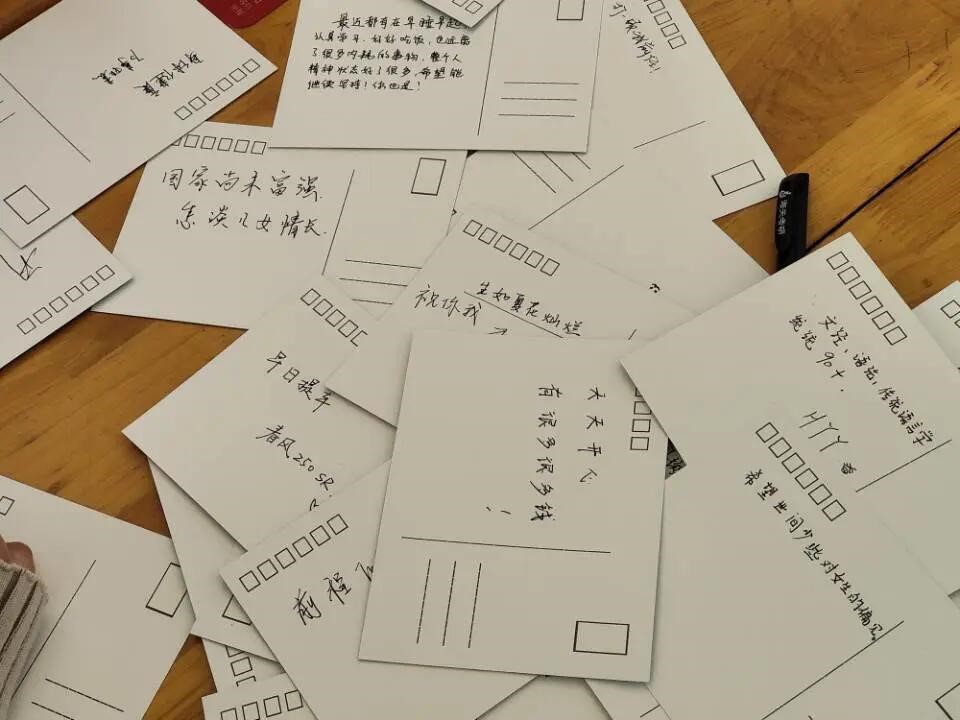 最近都有在早睡早起
认真学习,好好吃饭,也远离
了很多内耗的事物,整个人
精神状态好了很多,希望能
继续坚持!你也是!
身体健康
万事如意
国家尚未富强
怎谈儿女情长.
祝你我
生如夏花灿烂
早日提车
春风250SR
前程
天天开心
有很多很多钱
!
文经、语法,
语言学
统统90+.
HYY
希望世间少些对女生的偏见。